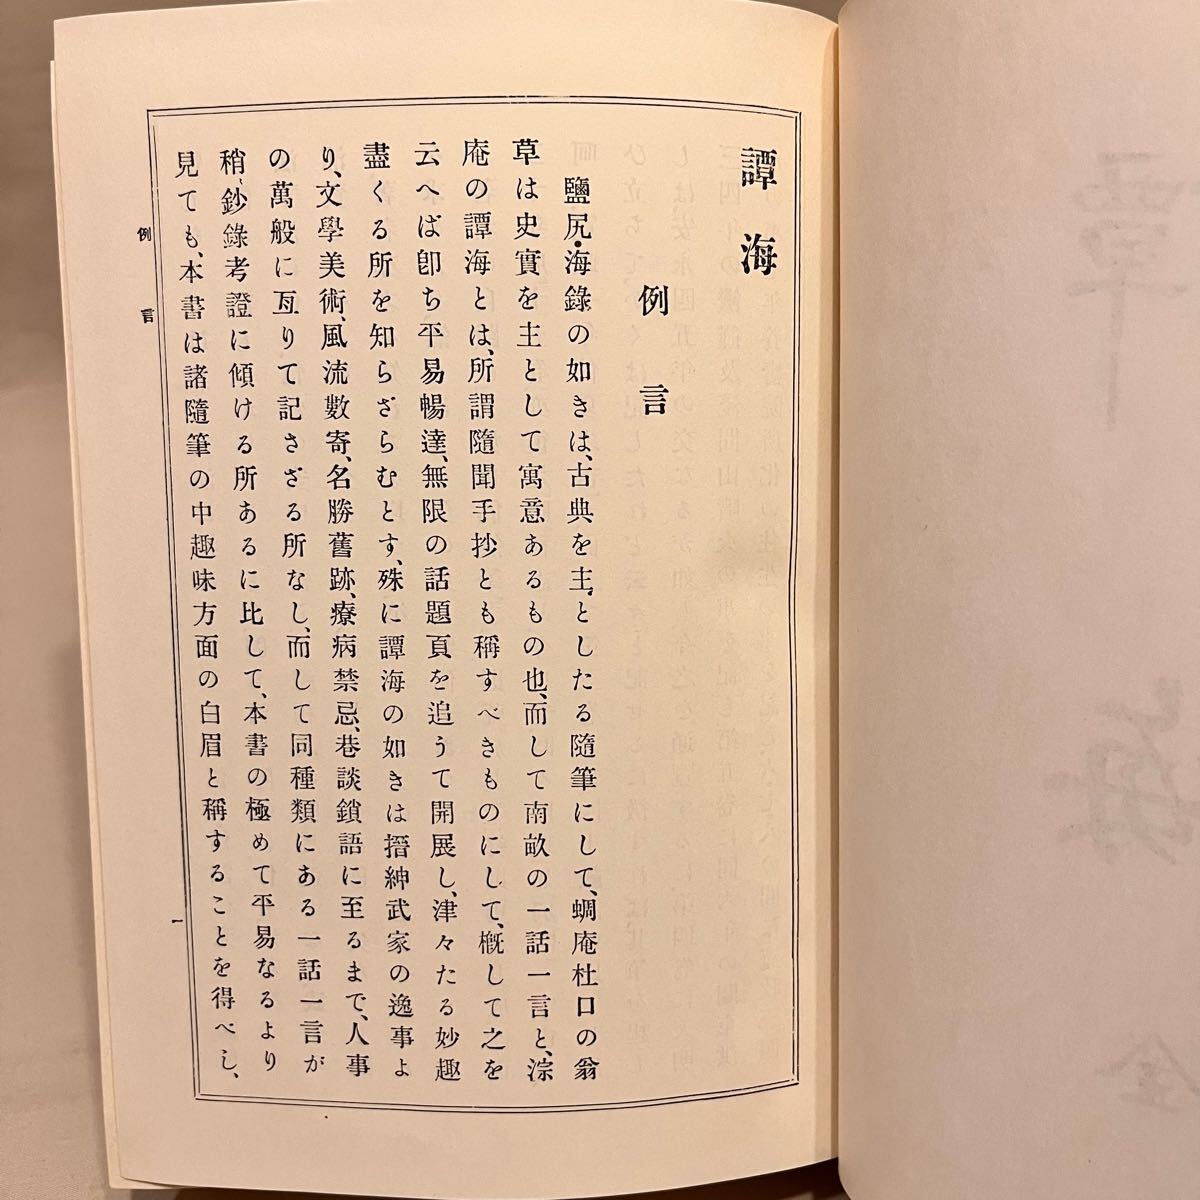 譚海
例言
鹽尻・海錄の如きは、古典を主としたる隨筆にして、蜩庵杜口の翁
草は史實を主として寓意あるもの也、而して南畝の一話一言と、淙
庵の譚海とは、所謂隨聞手抄とも稱すべきものにして、槪して之を
云へば卽ち平易暢達、無限の話題頁を追うて開展し、津々たる妙趣
盡くる所を知らざらむとす、殊に譚海の如きは搢紳武家の逸事よ
り、文學美術、風流數寄、名勝舊跡、療病禁忌、巷談鎖語に至るまで、人事
の萬般に亙りて記さざる所なし、而して同種類にある一話一言が
稍、鈔錄考證に傾ける所あるに比して、本書の極めて平易なるより
見ても、本書は諸隨筆の中趣味方面の白眉と稱することを得べし、
例言
一
全